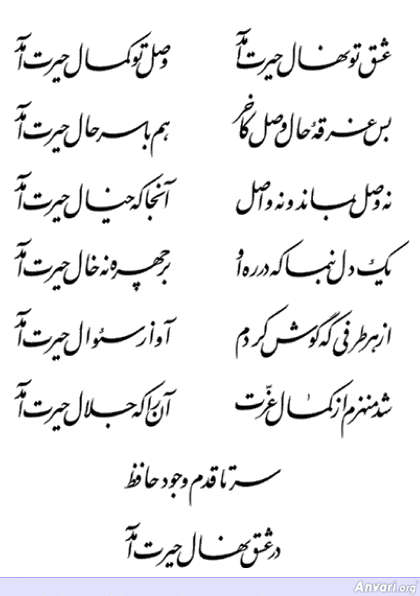 عشق تو نهال حیرت آمد وصل تو کمال حیرت آمد
بس غرقهٔ حال وصل کآخر هم با سر حال حیرت آمد
نه وصل بماند و نه واصل آنجا که خیال حیرت آمد
یک دل بنما که در ره او بر چهره نه خال حیرت آمد
از هر طرفی که گوش کردم آواز سئوال حیرت آمد
شد منهزم از کمال عزّت آن را که جلال حیرت آمد
سر تا قدم وجود حافظ
در عشق نهال حیرت آمد
Anvari.org